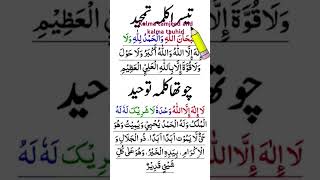 تیسرا کلمہ تمجید
kalma tamjeed and
kalma tauhid
سُبْحَانَ اللّٰهِ وَالْحَمْدُ لِلّٰهِ وَلَا
اِلٰهَ اِلَّا اللّٰهُ وَاللّٰهُ اَكْبَرُ وَلَا حَوْلَ
وَلَا قُوَّةَ اِلَّا بِاللّٰهِ الْعَلِيِّ الْعَظِيْمِ
چوتھا کلمہ توحید
لَا اِلٰهَ اِلَّا اللّٰهُ وَحْدَهٗ لَا شَرِيْكَ لَهٗ لَهُ
الْمُلْكُ وَلَهُ الْحَمْدُ يُحْيِيْ وَيُمِيْتُ وَهُوَ
حَيٌّ لَّا يَمُوْتُ اَبَدًا اَبَدًا ذُو الْجَلَالِ وَ
الْاِكْرَامِ بِيَدِهِ الْخَيْرُ وَهُوَ عَلٰى كُلِّ
شَيْءٍ قَدِيْرٌ